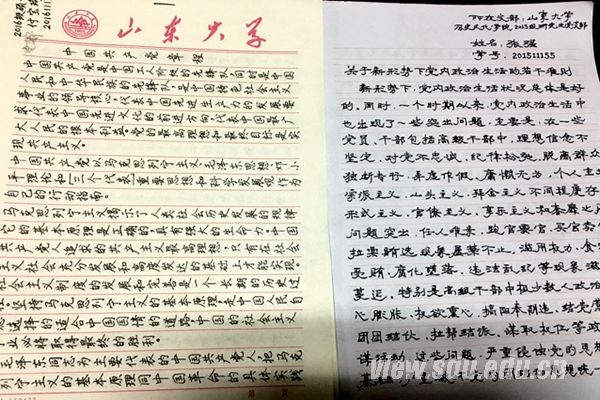 2016级研
山东大学
中国共产党章程
中国共产党是中国工人阶级的先锋队,同时是中国
人民和中华民族的先锋队,是中国特色社会主义
事业的领导核心,代表中国先进生产力的发展要
求,代表中国先进文化的前进方向,代表中国最广
大人民的根本利益。党的最高理想和最终目标是实
现共产主义。
中国共产党以马克思列宁主义、毛泽东思想、邓小
平理论和“三个代表”重要思想和科学发展观作为
自己的行动指南。
马克思列宁主义揭示了人类社会历史发展的规律
它的基本原理是正确的,具有强大的生命力。中国
共产党人追求的共产主义最高理想,只有在社会
主义社会充分发展和高度发达的基础上才能实现。
社会主义制度的发展和完善是一个长期的历史过
坚持马克思列宁主义的基本原理,走中国人民自
愿选择的适合中国国情的道路,中国的社会主义
业必将取得最终的胜利。
毛泽东同志为主要代表的中国共产党人,把马克
列宁主义的基本原理同中国革命的具体实践
第 页
所在支部:山东大学
历史文化学院2015级研究生党支部
姓名:张强
学号:201511155
关于新形势下党内政治生活的若干准则
新形势下,党内政治生活状况总体是好
的。同时,一个时期以来,党内政治生活中
也出现了一些突出问题,主要是:在一些
党员、干部包括高级干部中,理想信念不
坚定、对党不忠诚、纪律松弛、脱离群众
独断专行、弄虚作假、庸懒无为,个人主
宗派主义、山头主义、拜金主义不同程度存
形式主义、官僚主义、享乐主义和奢靡之风
问题突出,任人唯亲、跑官要官、买官卖官
拉票贿选现象屡禁不止,滥用权力、贪
受贿、腐化堕落、违法乱纪等现象滋
蔓延。特别是高级干部中极少数人政治
心膨胀、权欲熏心,搞阳奉阴违、结党营
团团伙伙、拉帮结派、谋取权位等政
谋活动。这些问题,严重侵蚀党的思想
view.sdu.edu.cn